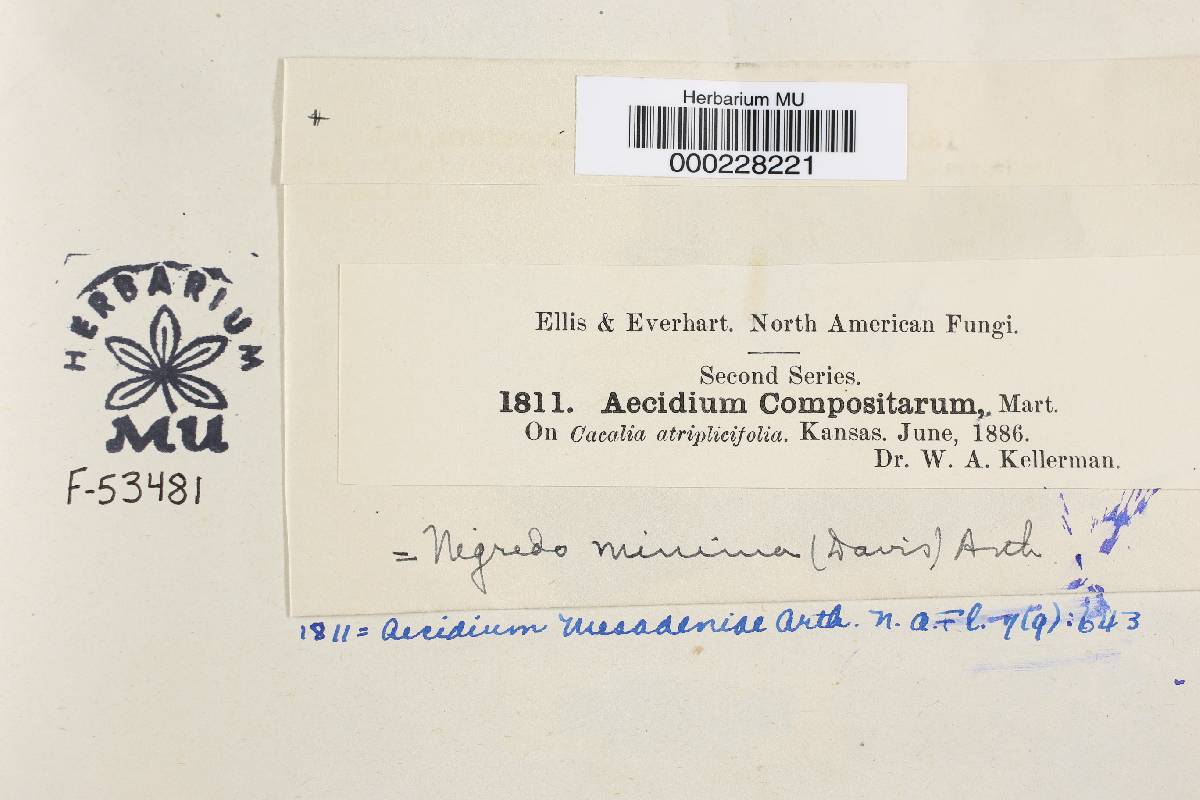 Herbarium MU
000228221
HERBARIUM
MU
F-53481
Ellis & Everhart. North American Fungi.
Second Series.
1811. Aecidium Compositarum, Mart.
On Cacalia atriplicifolia. Kansas. June, 1886.
Dr. W. A. Kellerman.
= Nigredo minima (Davis) Arth
1811 = Aecidium Mesadeniae Arth. N. A. Fl. 7(9):643